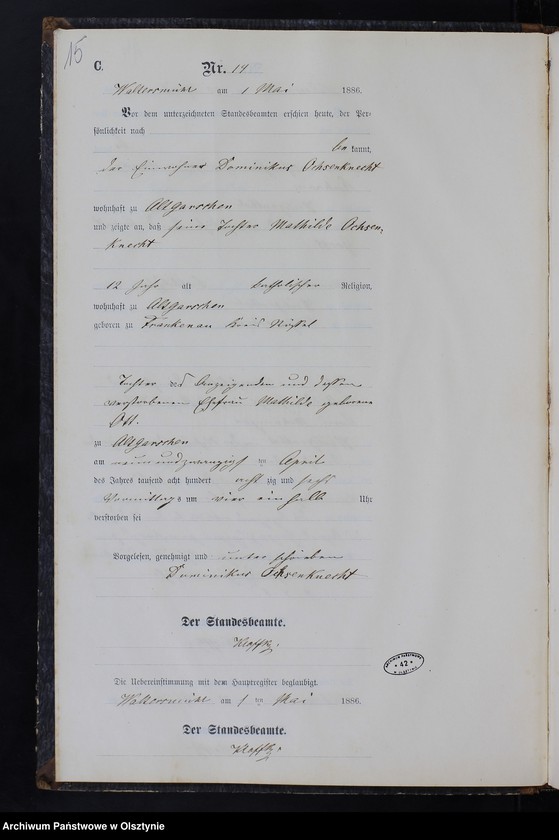 15
C.
Nr. 14
Waltersmühl am 1 Mai 1886.
Vor dem unterzeichneten Standesbeamten erschien heute, der Per-
sönlichkeit nach
bekannt,
der Einwohner Dominikus Ochsenknecht
wohnhaft zu Altgarschen
und zeigte an, daß seine Tochter Mathilde Ochsen-
knecht
12 Jahr alt katholischer Religion,
wohnhaft zu Altgarschen
geboren zu Frankenau Kreis Rössel
Tochter des Anzeigenden und dessen
verstorbenen Ehefrau Mathilde geborene
Ott.
zu Altgarschen
am neunundzwanzigst ten April
des Jahres tausend acht hundert achtzig und sechs
Vormittags um vier ein halb Uhr
verstorben sei
Vorgelesen, genehmigt und unterschrieben
Dominikus Ochsenknecht
Der Standesbeamte.
Die Uebereinstimmung mit dem Hauptregister beglaubigt.
Waltersmühl am 1 ten Mai 1886.
Der Standesbeamte.
42
Archiwum Państwowe w Olsztynie